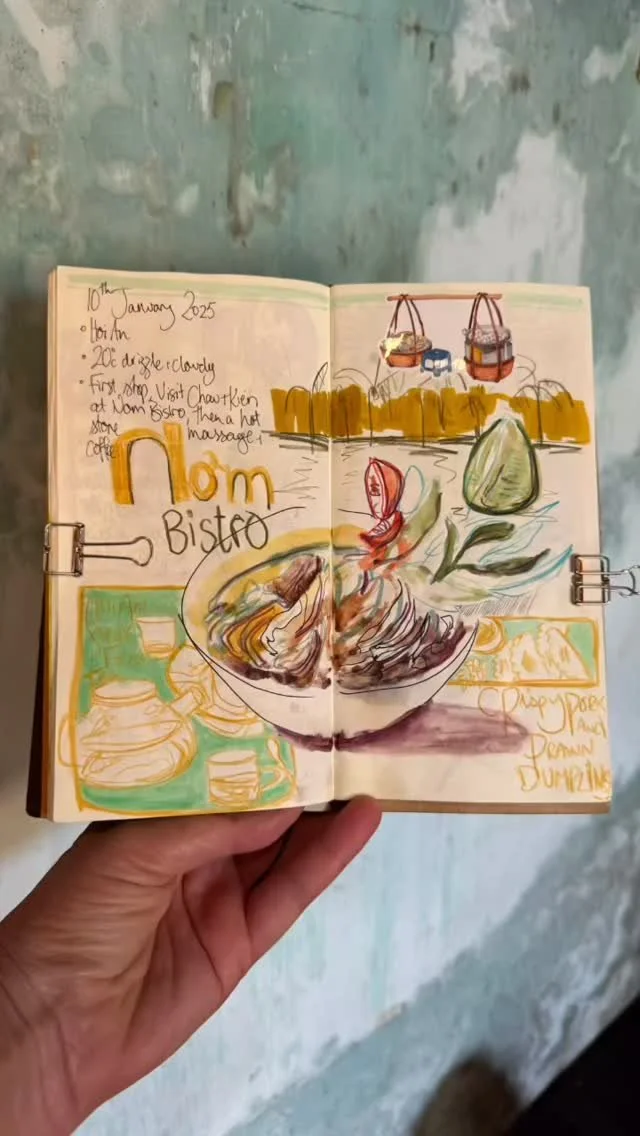 10th January 2025
• Hoi An
• 20°c drizzle & cloudy
• First stop, Visit Chau + Kien
at Nơm Bistro, Then a hot
stone massage +
coffee
Nơm
Bistro
Crispy pork
and
Prawn
Dumpling